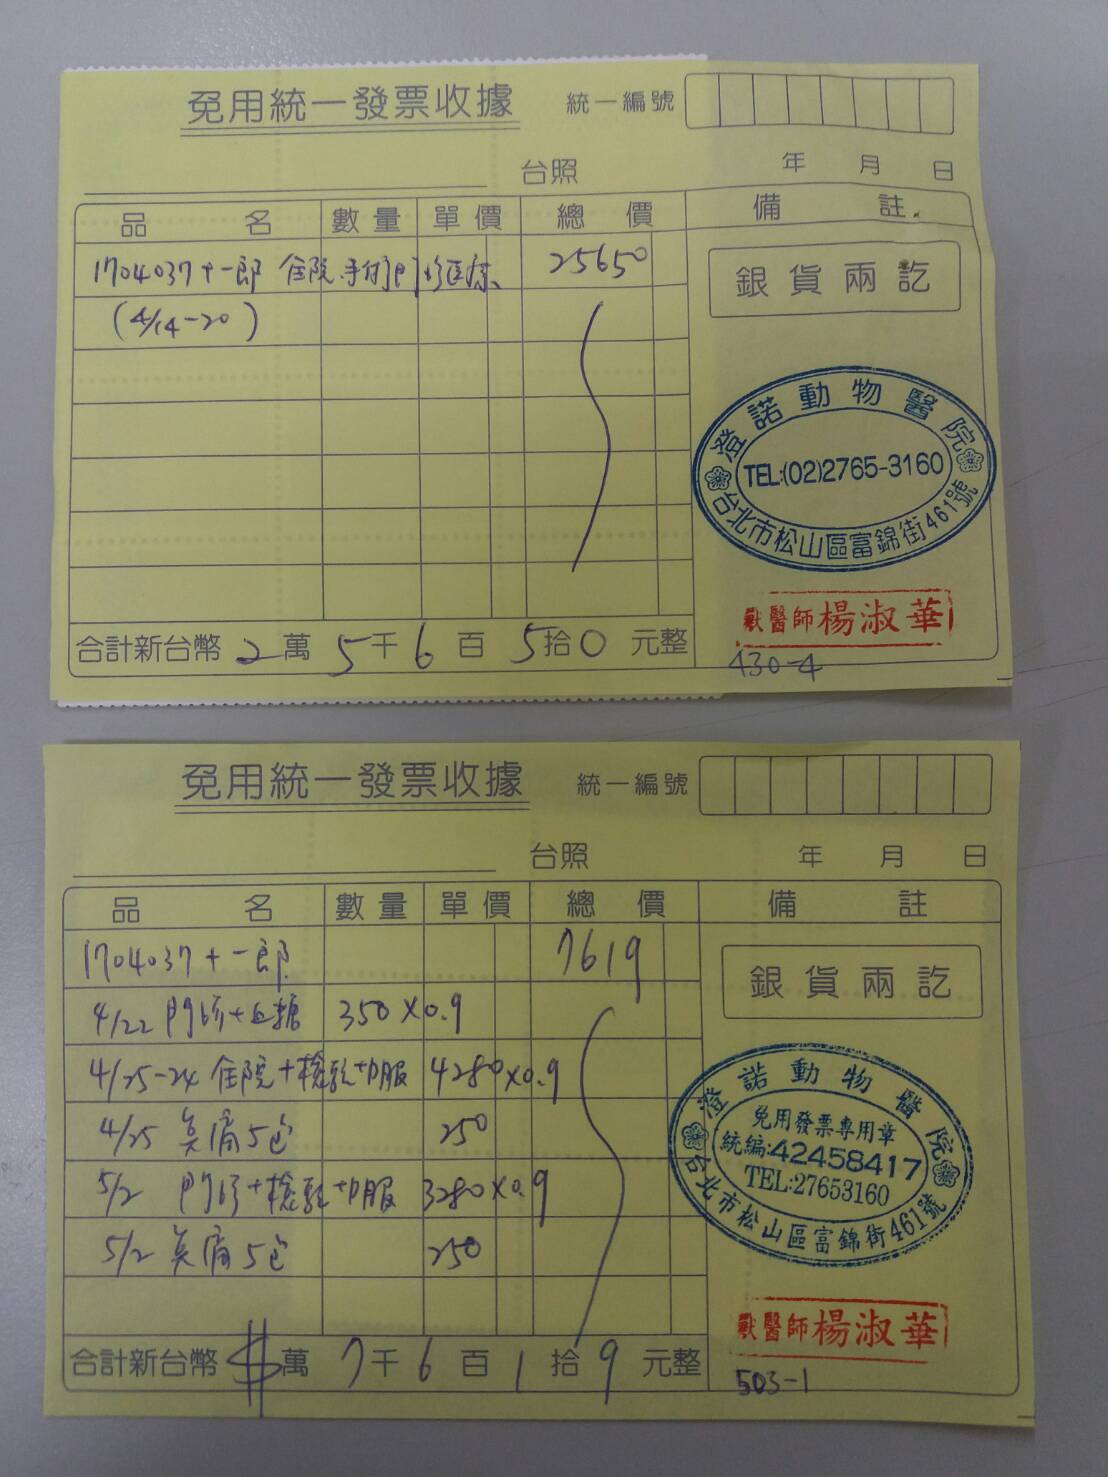 免用統一發票收據 統一編號
台照 年 月 日
品名 數量 單價 總價 備註
1704037 十一郎 住院.手術.門診医療. 25650
(4/14-20)
銀貨兩訖
澄諾動物醫院
TEL:(02)2765-3160
台北市松山區富錦街461號
獸醫師楊淑華
合計新台幣 2萬 5千 6百 5拾 0 元整
430-4
免用統一發票收據 統一編號
台照 年 月 日
品名 數量 單價 總價 備註
1704037 十一郎. 7619
4/22 門診+血糖 350×0.9
4/25-24 住院+檢驗+內服 4280×0.9
4/25 5包 250
5/2 門診+檢驗+內服 3280×0.9
5/2 5包 250
銀貨兩訖
澄諾動物醫院
免用發票專用章
統編:42458417
TEL:27653160
台北市松山區富錦街461號
獸醫師楊淑華
合計新台幣 $萬 7千 6百 1拾 9元整
503-1